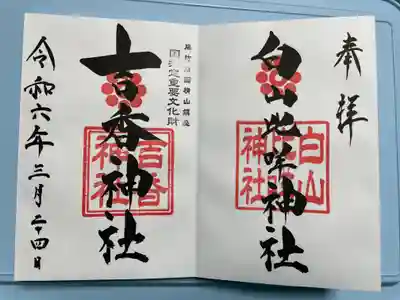 奉拝
白山比咩神社
白山
比咩
神社
横山鎮座
国指定重要文化財
吉香神社
吉香
神社
令和六年三月二十四日